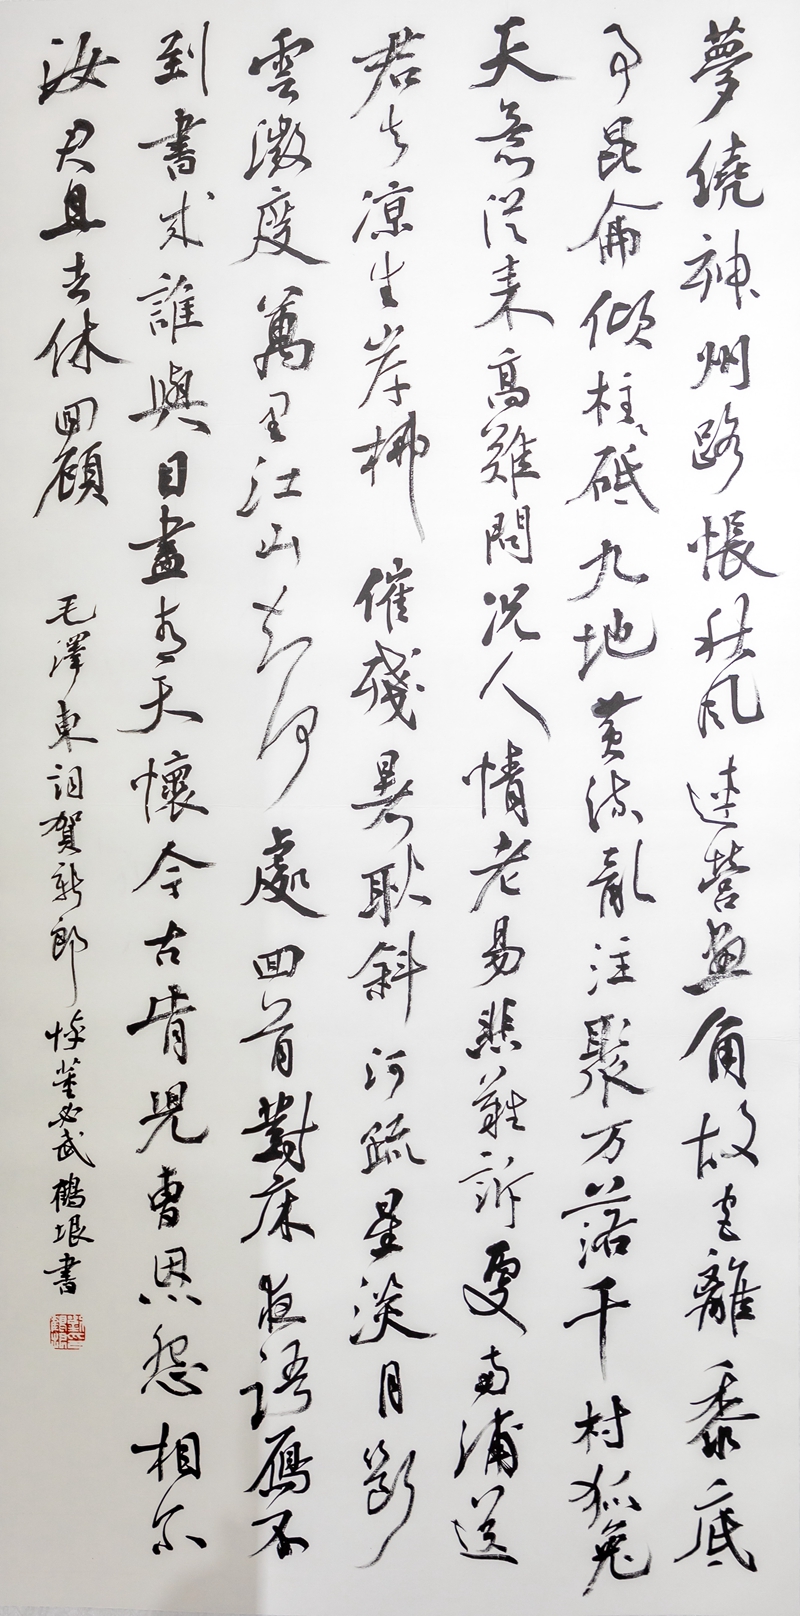 夢繞神州路悵秋风連營画角故宮離黍底
事昆侖傾柱砥九地黄流亂注聚万落千村狐兔
天意從来高難問況人情老易悲難訴更南浦送
君去凉生岸柳催殘暑耿斜河疏星淡月斷
雲微度萬里江山知何處回首對床夜語鴈不
到書成誰與目盡青天懷今古肯児曹恩怨相尔
汝君且去休回顧
毛澤東詞賀新郎 悼董必武 鶴垠書